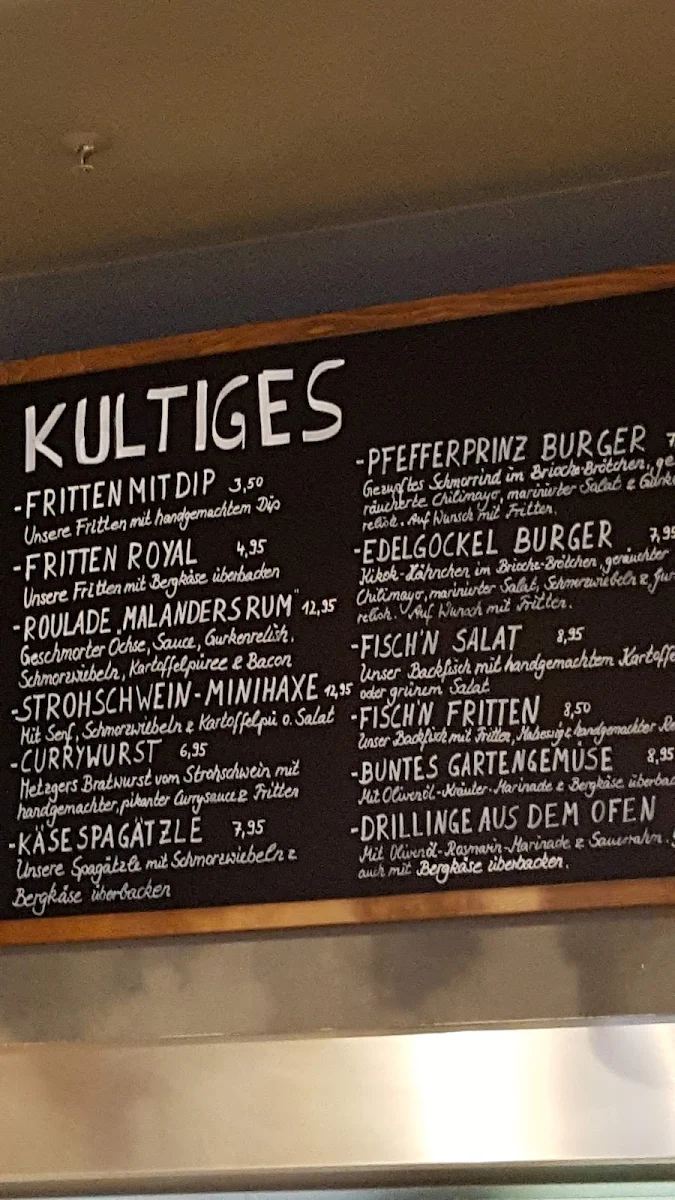 KULTIGES
-FRITTEN MIT DIP 3,50
Unsere Fritten mit handgemachtem Dip
-FRITTEN ROYAL 4,95
Unsere Fritten mit Bergkäse überbacken
-ROULADE „MALANDERS RUM" 12,95
Geschmorter Ochse, Sauce, Gurkenrelish,
Schmorzwiebeln, Kartoffelpüree & Bacon
-STROHSCHWEIN-MINIHAXE 12,95
Mit Senf, Schmorzwiebeln & Kartoffelpü o. Salat
-CURRYWURST 6,95
Metzgers Bratwurst vom Strohschwein mit
handgemachter, pikanter Currysauce & Fritten
-KÄSESPAGÄTZLE 7,95
Unsere Spagätzle mit Schmorzwiebeln &
Bergkäse überbacken
-PFEFFERPRINZ BURGER
Gezupftes Schmorrind im Brioche-Brötchen, ge
räucherte Chilimayo, marinierter Salat & Gurke
relish. Auf Wunsch mit Fritten.
-EDELGOCKEL BURGER 7,95
Kikok-Hähnchen im Brioche-Brötchen, geräucherter
Chilimayo, marinierter Salat, Schmorzwiebeln & Gur
relish. Auf Wunsch mit Fritten.
-FISCH'N SALAT 8,95
Unser Backfisch mit handgemachtem Kartoffe
oder grünem Salat
-FISCH'N FRITTEN 8,50
Unser Backfisch mit Fritten, & handgemachter Re
-BUNTES GARTENGEMÜSE 8,95
Mit Olivenöl-Kräuter-Marinade & Bergkäse überbac
-DRILLINGE AUS DEM OFEN
Mit Olivenöl-Rosmarin-Marinade & Sauerrahm.
auch mit Bergkäse überbacken.